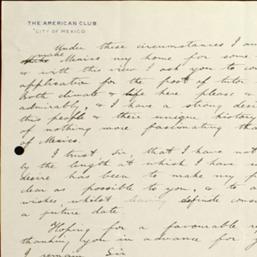 THE AMERICAN CLUB
CITY OF MEXICO
Under these circumstances I am
make Mexico my home for some
& with this view I ask you to con
application for the post of tutor
Both climate & life here please
admirably, & I have a strong desi
this people & their unique history
of nothing more fascinating tha
of Mexico.
I trust Sir that I have not
by the length at which I have
desire has been to make my p
clear as possible to you, & to a
wishes, whilst definite cons
a future date.
Hoping for a favourable re
thanking you in advance for y
I remain Sir